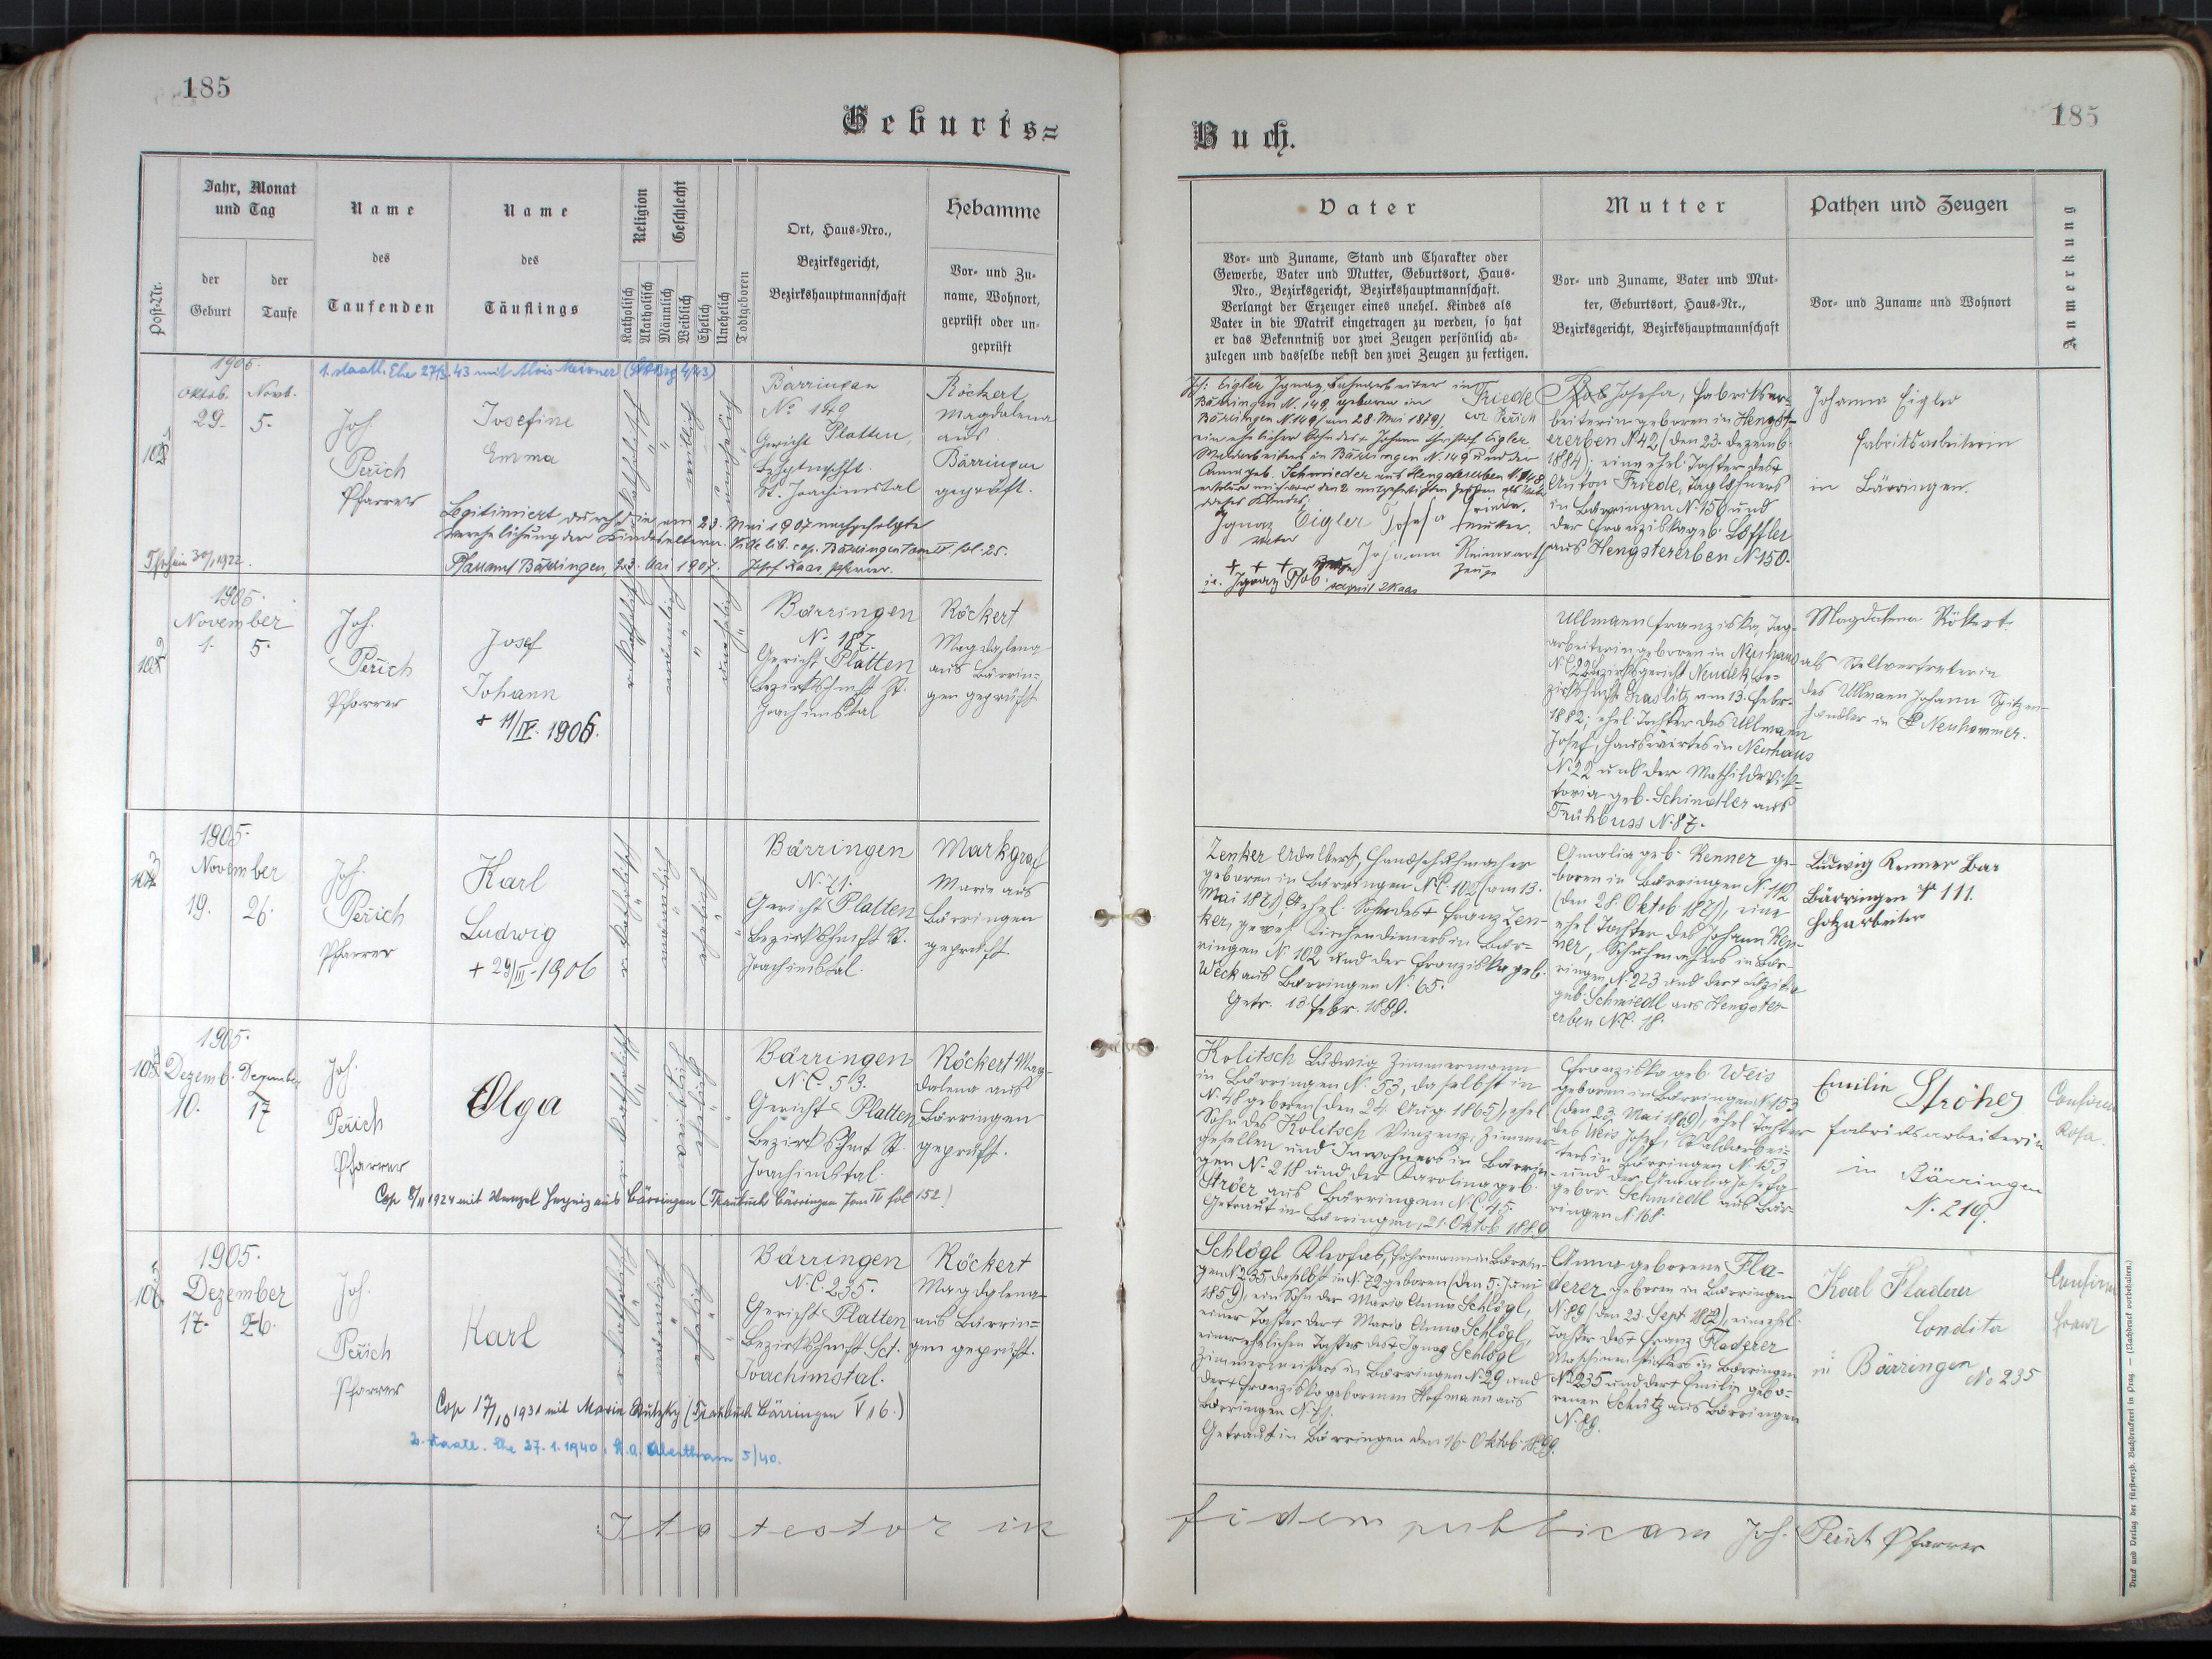 185
Geburts=
Post-Nr.
Jahr, Monat
und Tag
der
Geburt
der
Taufe
Name
des
Taufenden
Name
des
Täuflings
Religion
Katholisch
Akatholisch
Geschlecht
Männlich
Weiblich
Ehelich
Unehelich
Todtgeboren
Ort, Haus-Nro.,
Bezirksgericht,
Bezirkshauptmannschaft
Hebamme
Vor- und Zu-
name, Wohnort,
geprüft oder un-
geprüft
1. staatl. Ehe 27/3. 43 mit Alois Meixner
1905.
Oktob. Novb.
29. 5.
Joh
Perich
Pfarrer
Josefine
Emma
Bärringen
No 149
Gericht Platten,
St. Joachimstal
Röckert
Magdalena
aus
Bärringen
geprüft.
Legitimiert durch die am 23. Mai 1907 nachgefolgte
Verehelichung der Kindeseltern. Vide lib. cop. Bärringen Tom IV fol. 25.
Pfarramt Bärringen, 23. Mai 1907. Josef Kaas, Pfarrer.
1905.
November
1. 5.
Joh.
Perich
Pfarrer
Josef
Johann
+ 11/IV. 1906.
Bärringen
N. 187.
Gericht Platten
Bezirkshmsft St.
Joachimstal
Röckert
Magdalena
aus Bärrin=
gen geprüft
1905.
November
19. 26.
Joh.
Perich
Pfarrer
Karl
Ludwig
+ 29/III. 1906
Bärringen
N. 71.
Gericht Platten
Bezirkshmsft St.
Joachimstal.
Markgraf
Marie aus
Bärringen
geprüft
1905.
Dezemb. Dezember
10. 17
Joh.
Perich
Pfarrer
Olga
Bärringen
N.C. 53.
Gericht Platten
Bezirkshmft St.
Joachimstal.
Röckert Mag-
dalena aus
Bärringen
geprüft.
Cop 8/II 1924 mit Wenzel aus Bärringen (Traubuch Bärringen Tom IV fol 152)
1905.
Dezember
17. 26.
Joh.
Perich
Pfarrer
Karl
Bärringen
N.C. 235.
Gericht Platten
Bezirkshmft Sct.
Joachimstal.
Röckert
Magdalena
aus Bärrin=
gen geprüft.
Cop 17/10 1931 mit Maria (Traubuch Bärringen V 16.)
2. staatl. Ehe 27. 1. 1940. St. A. Abertham 5/40.
Ita testor in
185
Buch.
Vater
Vor- und Zuname, Stand und Charakter oder
Gewerbe, Vater und Mutter, Geburtsort, Haus-
Nro., Bezirksgericht, Bezirkshauptmannschaft.
Verlangt der Erzeuger eines unehel. Kindes als
Vater in die Matrik eingetragen zu werden, so hat
er das Bekenntniß vor zwei Zeugen persönlich ab-
zulegen und dasselbe nebst den zwei Zeugen zu fertigen.
Mutter
Vor- und Zuname, Vater und Mut-
ter, Geburtsort, Haus-Nr.,
Bezirksgericht, Bezirkshauptmannschaft
Pathen und Zeugen
Vor- und Zuname und Wohnort
Anmerkung
Eigler Ignaz, Bahnarbeiter in
Bärringen N. 149, geboren in
Bärringen N. 149 (am 28. Mai 1879)
ein ehelicher Sohn des + Johann Christof Eigler
Waldarbeiters in Bärringen N. 149 und der
Anna geb. Schmieder aus Hengstererben
Ignaz Eigler Josefa Friede.
Vater Mutter.
+ + + Johann Reinwarth
Zeuge
Friede
Josefa, Fabriksar-
beiterin geboren in Hengst-
ererben N 42, (den 23. Dezemb.
1884); eine ehel. Tochter des +
Anton Friede, Taglöhners
in Bärringen N. 156 und
der Franziska geb. Löffler
aus Hengstererben N 150.
Johanna Eigler
Fabriksarbeiterin
in Bärringen.
Ullmann Franziska, Tag-
arbeiterin geboren in Neuhaus
N.C 22 Bezirksgericht Neudek Be-
zirkshmsft Graslitz am 13. Feber
1882; ehel. Tochter des Ullmann
Josef, Hauswirtes in Neuhaus
N. 22 und der Mathilde Vik=
toria geb. Schindler aus
Frühbuss N. 87.
Magdalena Rökert
als Stellvertreterin
des Ullmann Johann Spitzen-
händler in Neuhammer.
Zenker Adalbert, Handschuhmacher
geboren in Bärringen N.C. 102 (am 13.
Mai 1871) ehel. Sohn des + Franz Zen-
ker, gewes. Kirchendieners in Bär-
ringen N. 102 und der Franziska geb.
Weck aus Bärringen N. 65.
Getr. 13. Febr. 1899.
Amalia geb. Renner ge-
boren in Bärringen N. 112
(den 28. Oktob. 1871), eine
ehel Tochter des Johann Ren-
ner, Schuhmachers in Bär-
ringen N. 223 und der +
geb. Schmiedl aus Hengster-
erben N.C. 18.
Ludwig Renner
Bärringen 111.
Holzarbeiter
Kolitsch Ludwig Zimmermann
in Bärringen N. 53, daselbst in
N. 48 geboren (den 24. Aug. 1865), ehel
Sohn des Kolitsch Vinzenz, Zimmer-
gesellen und Inwohners in Bärrin-
gen N. 218 und der Karolina geb.
Ströer aus Bärringen N.C. 45.
Getraut in Bärringen, 21. Oktob 1889
Franziska geb. Weis
geboren in Bärringen N. 153
(den 23. Mai 1869), ehel Tochter
des Weis Josef, Waldarbei-
ters in Bärringen N 153
und der Amalia Josefa
gebor. Schmiedl aus Bär-
ringen N. 168.
Emilie Ströher
Fabriksarbeiterin
in Bärringen
N. 219.
Rosa.
Schlögl Kleofas, Fuhrmann in Bärrin-
gen N. 235, daselbst in N. 72 geboren (den 5. Juni
1859) ein Sohn der Maria Anna Schlögl,
einer Tochter der + Maria Anna Schlögl,
einer ehelichen Tochter des + Ignaz Schlögl
Zimmermeisters in Bärringen N. 29 und
der + Franziska geborenen Hofmann aus
Bärringen N. 71.
Getraut in Bärringen den 16. Oktob. 1899.
Anna geborene Fla-
derer geboren in Bärringen
N. 89 (den 23. Sept 1872), eine ehel.
Tochter des + Franz Fladerer
Maschinenstickers in Bärringen
N. 235 und der + Emilie gebo-
renen Schütz aus Bärringen
N. 89.
Karl Fladerer
Condita
in Bärringen No 235
fidem publicam Joh. Perich Pfarrer
Druck und Verlag der fürsterzb. Buchdruckerei in Prag. — (Nachdruck vorbehalten.)